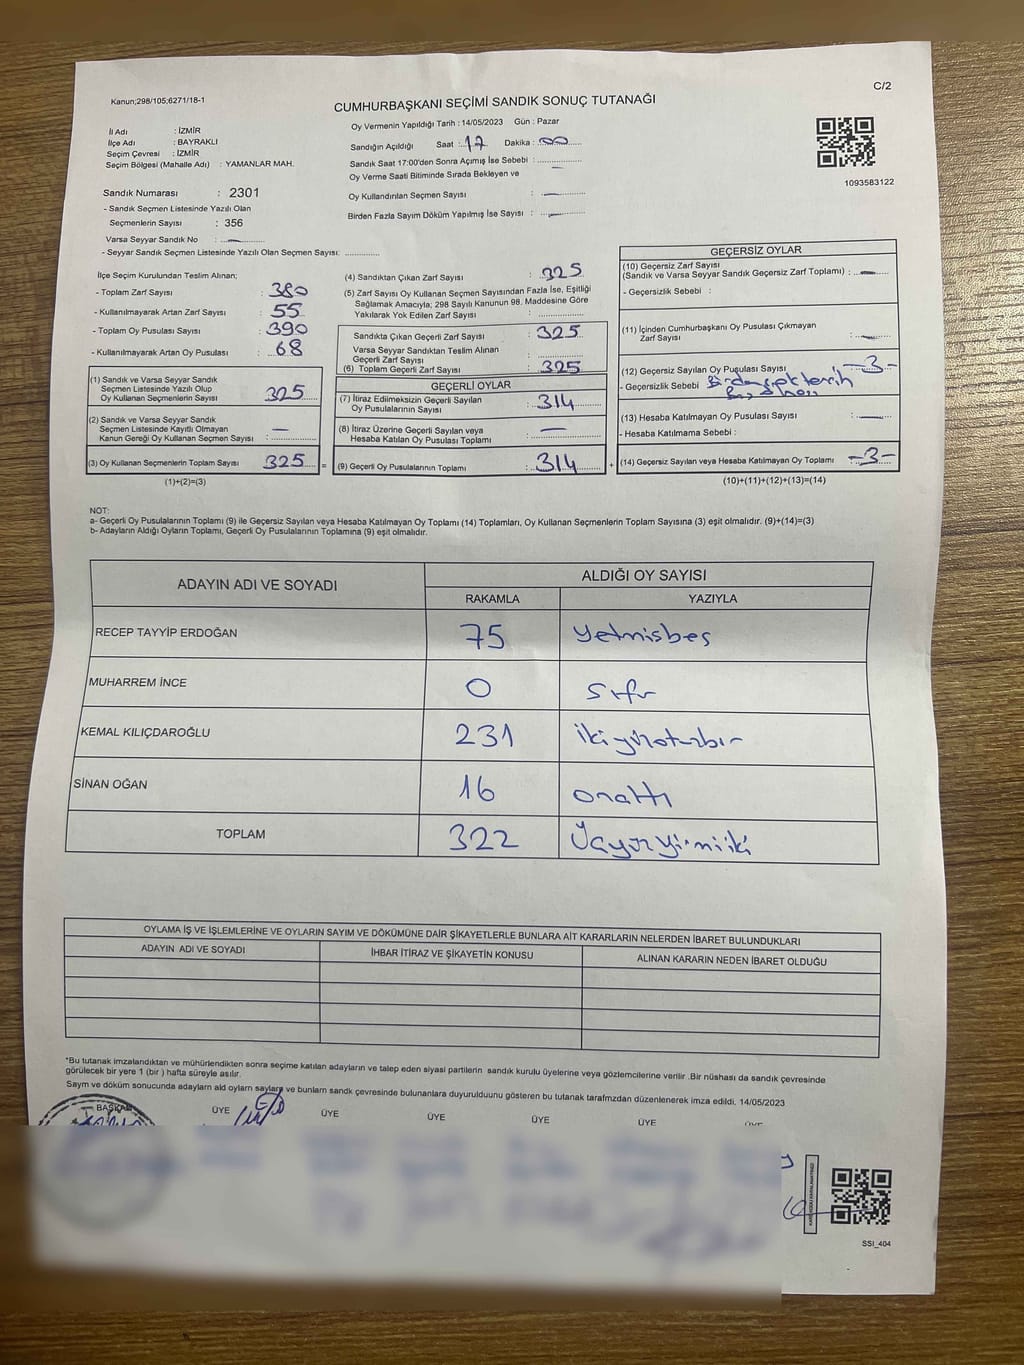 Kanun;298/105;6271/18-1
C/2
CUMHURBAŞKANI SEÇİMİ SANDIK SONUÇ TUTANAĞI
Oy Vermenin Yapıldığı Tarih : 14/05/2023 Gün : Pazar
İl Adı : İZMİR
İlçe Adı : BAYRAKLI
Seçim Çevresi : İZMİR
Seçim Bölgesi (Mahalle Adı) : YAMANLAR MAH.
Sandığın Açıldığı Saat : 17 Dakika : 00
Sandık Saat 17:00'den Sonra Açımış İse Sebebi :
Oy Verme Saati Bitiminde Sırada Bekleyen ve
Oy Kullandırılan Seçmen Sayısı : —
Birden Fazla Sayım Döküm Yapılmış İse Sayısı : —
1093583122
Sandık Numarası : 2301
- Sandık Seçmen Listesinde Yazılı Olan
Seçmenlerin Sayısı : 356
Varsa Seyyar Sandık No : —
- Seyyar Sandık Seçmen Listesinde Yazılı Olan Seçmen Sayısı:
İlçe Seçim Kurulundan Teslim Alınan;
- Toplam Zarf Sayısı : 380
- Kullanılmayarak Artan Zarf Sayısı : 55
- Toplam Oy Pusulası Sayısı : 390
- Kullanılmayarak Artan Oy Pusulası : 68
(1) Sandık ve Varsa Seyyar Sandık
Seçmen Listesinde Yazılı Olup
Oy Kullanan Seçmenlerin Sayısı : 325
(2) Sandık ve Varsa Seyyar Sandık
Seçmen Listesinde Kayıtlı Olmayan
Kanun Gereği Oy Kullanan Seçmen Sayısı : —
(3) Oy Kullanan Seçmenlerin Toplam Sayısı : 325
(1)+(2)=(3)
(4) Sandıktan Çıkan Zarf Sayısı : 325
(5) Zarf Sayısı Oy Kullanan Seçmen Sayısından Fazla İse, Eşitliği
Sağlamak Amacıyla; 298 Sayılı Kanunun 98. Maddesine Göre
Yakılarak Yok Edilen Zarf Sayısı :
Sandıkta Çıkan Geçerli Zarf Sayısı : 325
Varsa Seyyar Sandıktan Teslim Alınan
Geçerli Zarf Sayısı :
(6) Toplam Geçerli Zarf Sayısı : 325
GEÇERLİ OYLAR
(7) İtiraz Edilmeksizin Geçerli Sayılan
Oy Pusulalarının Sayısı : 314
(8) İtiraz Üzerine Geçerli Sayılan veya
Hesaba Katılan Oy Pusulası Toplamı : —
= (9) Geçerli Oy Pusulalarının Toplamı : 314
GEÇERSİZ OYLAR
(10) Geçersiz Zarf Sayısı
(Sandık ve Varsa Seyyar Sandık Geçersiz Zarf Toplamı) : —
- Geçersizlik Sebebi :
(11) İçinden Cumhurbaşkanı Oy Pusulası Çıkmayan
Zarf Sayısı : —
(12) Geçersiz Sayılan Oy Pusulası Sayısı : -3-
- Geçersizlik Sebebi
(13) Hesaba Katılmayan Oy Pusulası Sayısı : —
- Hesaba Katılmama Sebebi :
+ (14) Geçersiz Sayılan veya Hesaba Katılmayan Oy Toplamı : -3-
(10)+(11)+(12)+(13)=(14)
NOT:
a- Geçerli Oy Pusulalarının Toplamı (9) ile Geçersiz Sayılan veya Hesaba Katılmayan Oy Toplamı (14) Toplamları, Oy Kullanan Seçmenlerin Toplam Sayısına (3) eşit olmalıdır. (9)+(14)=(3)
b- Adayların Aldığı Oyların Toplamı, Geçerli Oy Pusulalarının Toplamına (9) eşit olmalıdır.
ADAYIN ADI VE SOYADI
ALDIĞI OY SAYISI
RAKAMLA YAZIYLA
RECEP TAYYİP ERDOĞAN 75 Yetmisbeş
MUHARREM İNCE 0 Sıfır
KEMAL KILIÇDAROĞLU 231 ikiyüzotuzbir
SİNAN OĞAN 16 onaltı
TOPLAM 322 Üçyüzyirmiiki
OYLAMA İŞ VE İŞLEMLERİNE VE OYLARIN SAYIM VE DÖKÜMÜNE DAİR ŞİKAYETLERLE BUNLARA AİT KARARLARIN NELERDEN İBARET BULUNDUKLARI
ADAYIN ADI VE SOYADI İHBAR İTİRAZ VE ŞİKAYETİN KONUSU ALINAN KARARIN NEDEN İBARET OLDUĞU
*Bu tutanak imzalandıktan ve mühürlendikten sonra seçime katılan adayların ve talep eden siyasi partilerin sandık kurulu üyelerine veya gözlemcilerine verilir .Bir nüshası da sandık çevresinde
görülecek bir yere 1 (bir ) hafta süreyle asılır.
Sayım ve döküm sonucunda adayların ald oyların sayları ve bunlarn sandk çevresinde bulunanlara duyurulduunu gösteren bu tutanak tarafmzdan düzenlenerek imza edildi. 14/05/2023
BAŞKAN ÜYE ÜYE ÜYE ÜYE ÜYE ÜYE
SSI_404